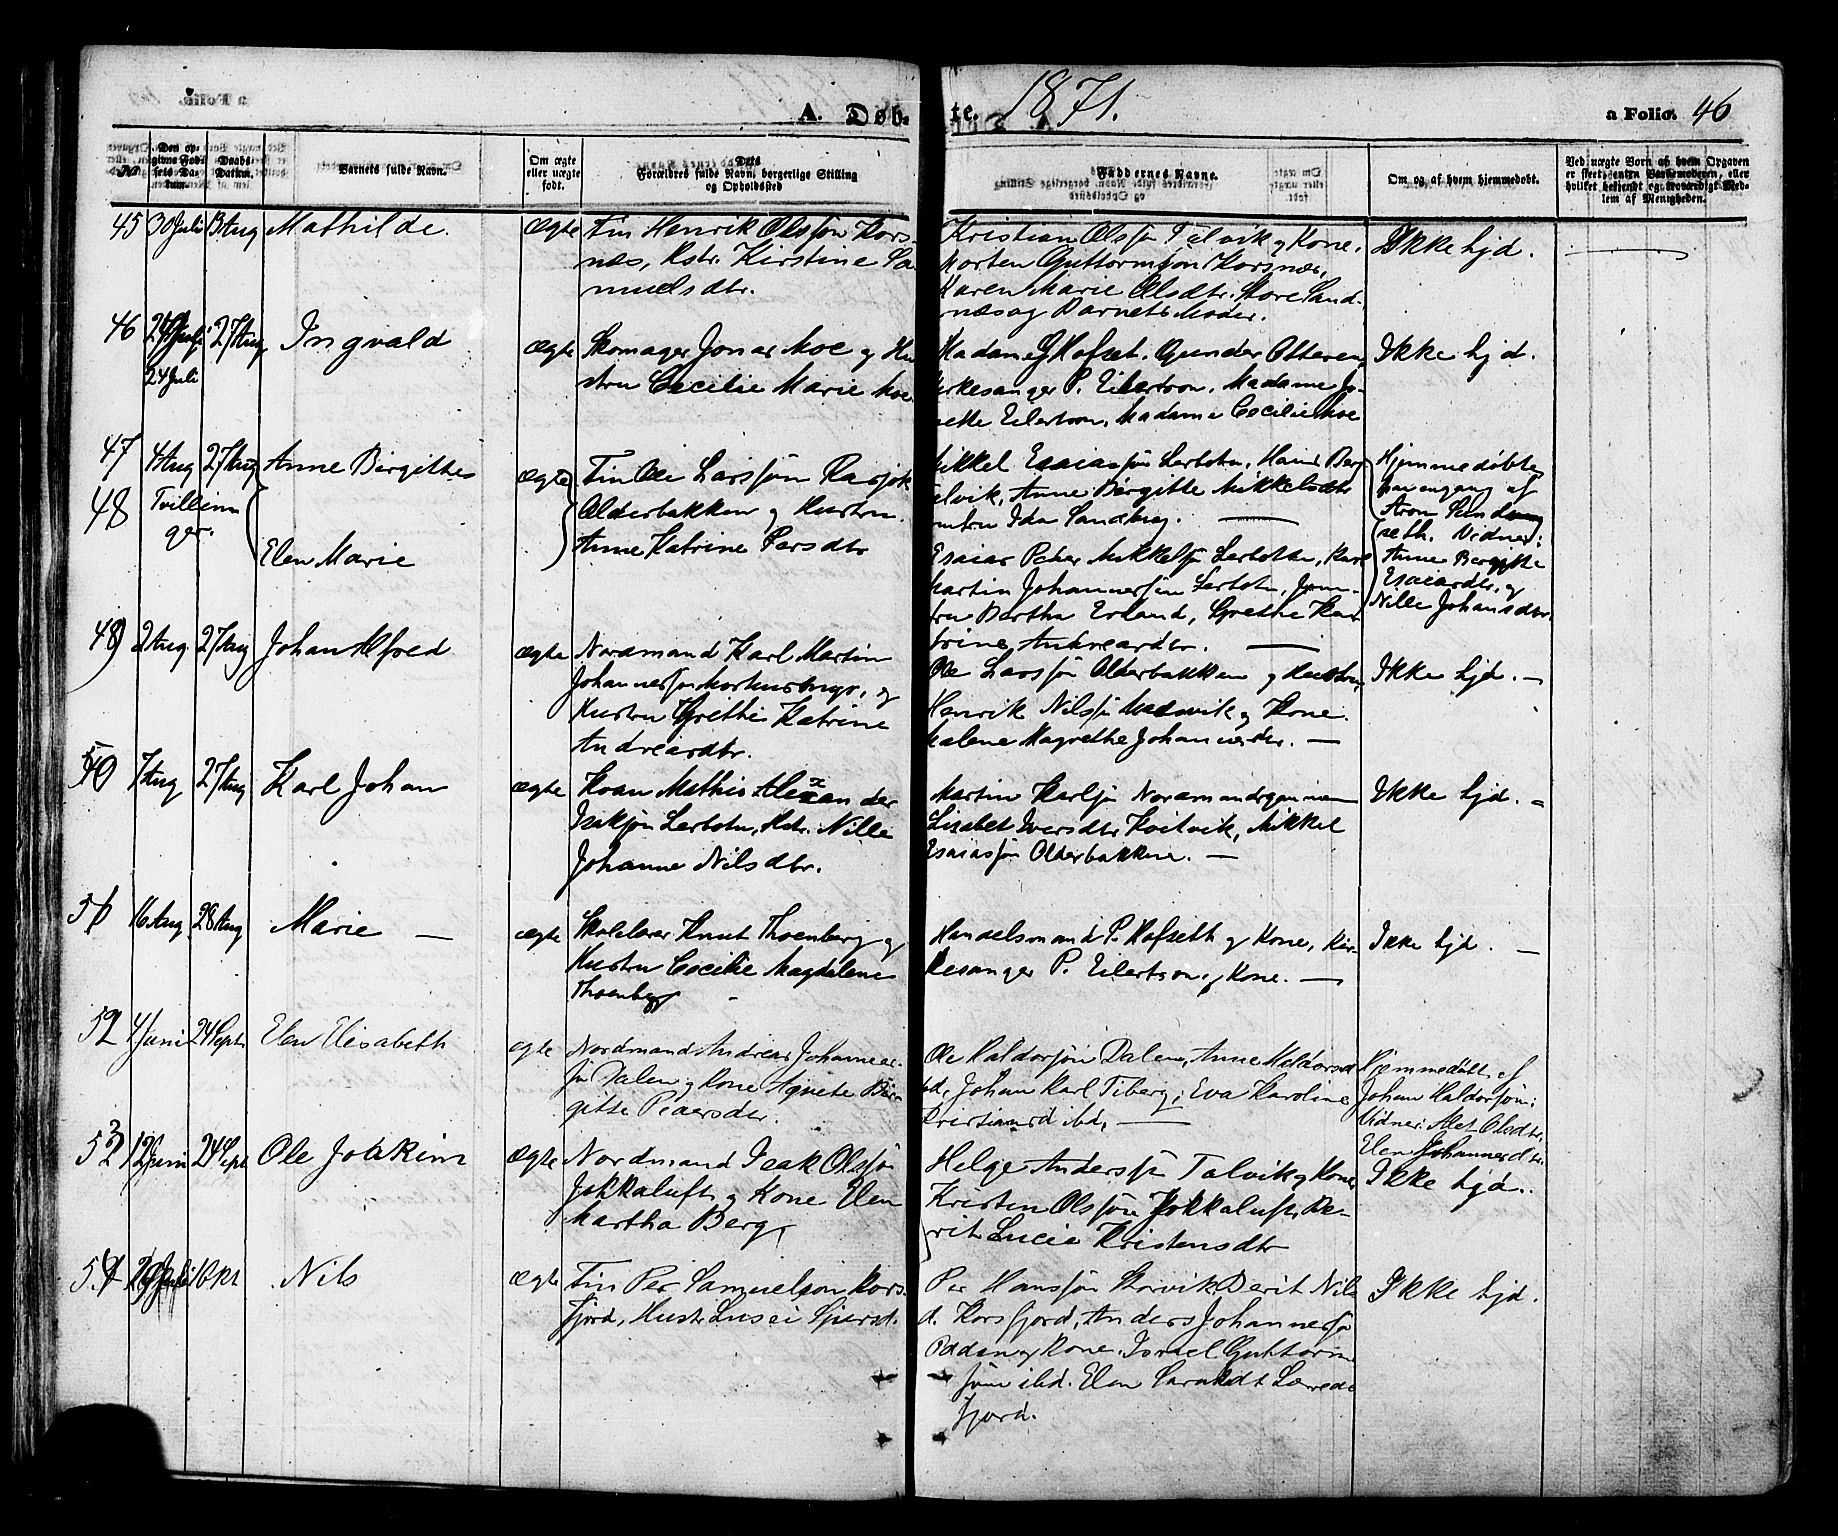 A. Døb-
te. 1871.
a Folio. 46
No
Den op-
givne Fød-
sels Da-
tum.
Daabs-
Datum.
Barnets fulde Navn.
Om ægte
eller uægte
født.
Dets
Forældres fulde Navn, borgerlige Stilling
og Opholdssted
Faddernes Navne.
Om og af hvem hjemmedøbt.
Ved uægte Børn af hvem Opgaven
er skeet, enten Barnemoderen, eller
hvilket bekjendt og troværdigt Med-
lem af Menigheden.
45 30 Juli 13 Aug Mathilde.
ægte Fin Henrik Olssøn Kors-
næs, Hstr. Kirstine Sa-
muelsdtr.
Kristian Olssøn Talvik og Kone,
Morten Guttormsøn Korsnæs,
Karen Marie Olsdtr. Store Sand-
næs og Barnets Moder.
Ikke hjd.
46 24 Juli 27 Aug Ingvald
24 Juli
ægte Skomager Jonas Moe og Hu-
stru Cecilie Marie Moe.
Madame Hofset. Gunder Ottersen,
Kirkesanger P. Eilertson. Madame Jo-
nette Eilertson, Madame Cecilie Moe
Ikke hjd.
47 4 Aug 27 Aug Anne Birgitte
48 Tvillin-
ger.
Elen Marie
ægte Fin Ole Larssøn
Olderbakken og Hustru
Anne Katrine Larsdtr
Mikkel Esaiassøn Lerbotn, Hans Berg
Talvik, Anne Birgitte Mikkelsdtr
Jomfru Ida Sandberg.
Esaias Peter Mikkelsøn Lerbotn, Karl
Martin Johannessøn Lerbotn, Jom-
fru Bertha Erland, Grethe Kat-
rine Andreasdtr.
Hjemmedøbte
paa engang af
Aron
Vidner:
Anne Bergitte
Esaiasdtr. og
Nille Johansdtr
48) 2 Aug. 27 Aug Johan Alfred
ægte Nordmand Karl Martin
Johannessøn og
Hustru Grethe Katrine
Andreasdtr.
Ole Larssøn Olderbakken og Hustru,
Henrik Nilsøn og Kone
Malene Magrethe Johannesdtr.
Ikke hjd.
50 7 Aug 27 Aug Karl Johan
ægte Kvæn Mathis Alexander
Isaksøn Lerbotn, Hstr. Nille
Johanne Nilsdtr.
Martin Karlsøn
Lisabet Iversdtr Kvitvik, Mikkel
Esaiassøn Olderbakken.
Ikke hjd.
51 16 Aug 28 Aug Marie
ægte Skolelærer Knut Thoenberg og
Hustru Cecilie Magdelene
Thoenberg
Handelsmand P. Hofseth og Kone, Kir-
kesanger P. Eilertson og Kone.
Ikke hjd.
52 4 Juni 24 Sept. Elen Elisabeth
ægte Nordmand Andreas Johannes-
søn Dalen og Kone Agnete Bir-
gitte Peersdtr.
Ole Haldorsøn Dalen, Anne Haldorsd
ibd, Johan Karl Tiberg, Eva Karoline
Kristiansd ibd,
Hjemmedøbt af
Johan Haldorsøn:
Vidner: Olsdtr,
Elen Johannesdtr.
53 12 Juni 24 Sept Ole Joakim
ægte Nordmand Isak Olssøn
Jokkaluft og Kone Elen
Martha Berg,
Helge Anderssøn Talvik og Kone
Kristen Olssøn Jokkaluft, Be-
rit Lucie Kristensdtr
Ikke hjd.
54 Juli 1 Okt Nils
ægte Fin Per Samuelson Kors-
fjord, Hustr
Per Hanssøn Storvik, Berit Nils
d. Korsfjord, Anders Johannessøn
og Kone. Israel Guttorm-
søn ibd. Elen
fjord.
Ikke hjd.